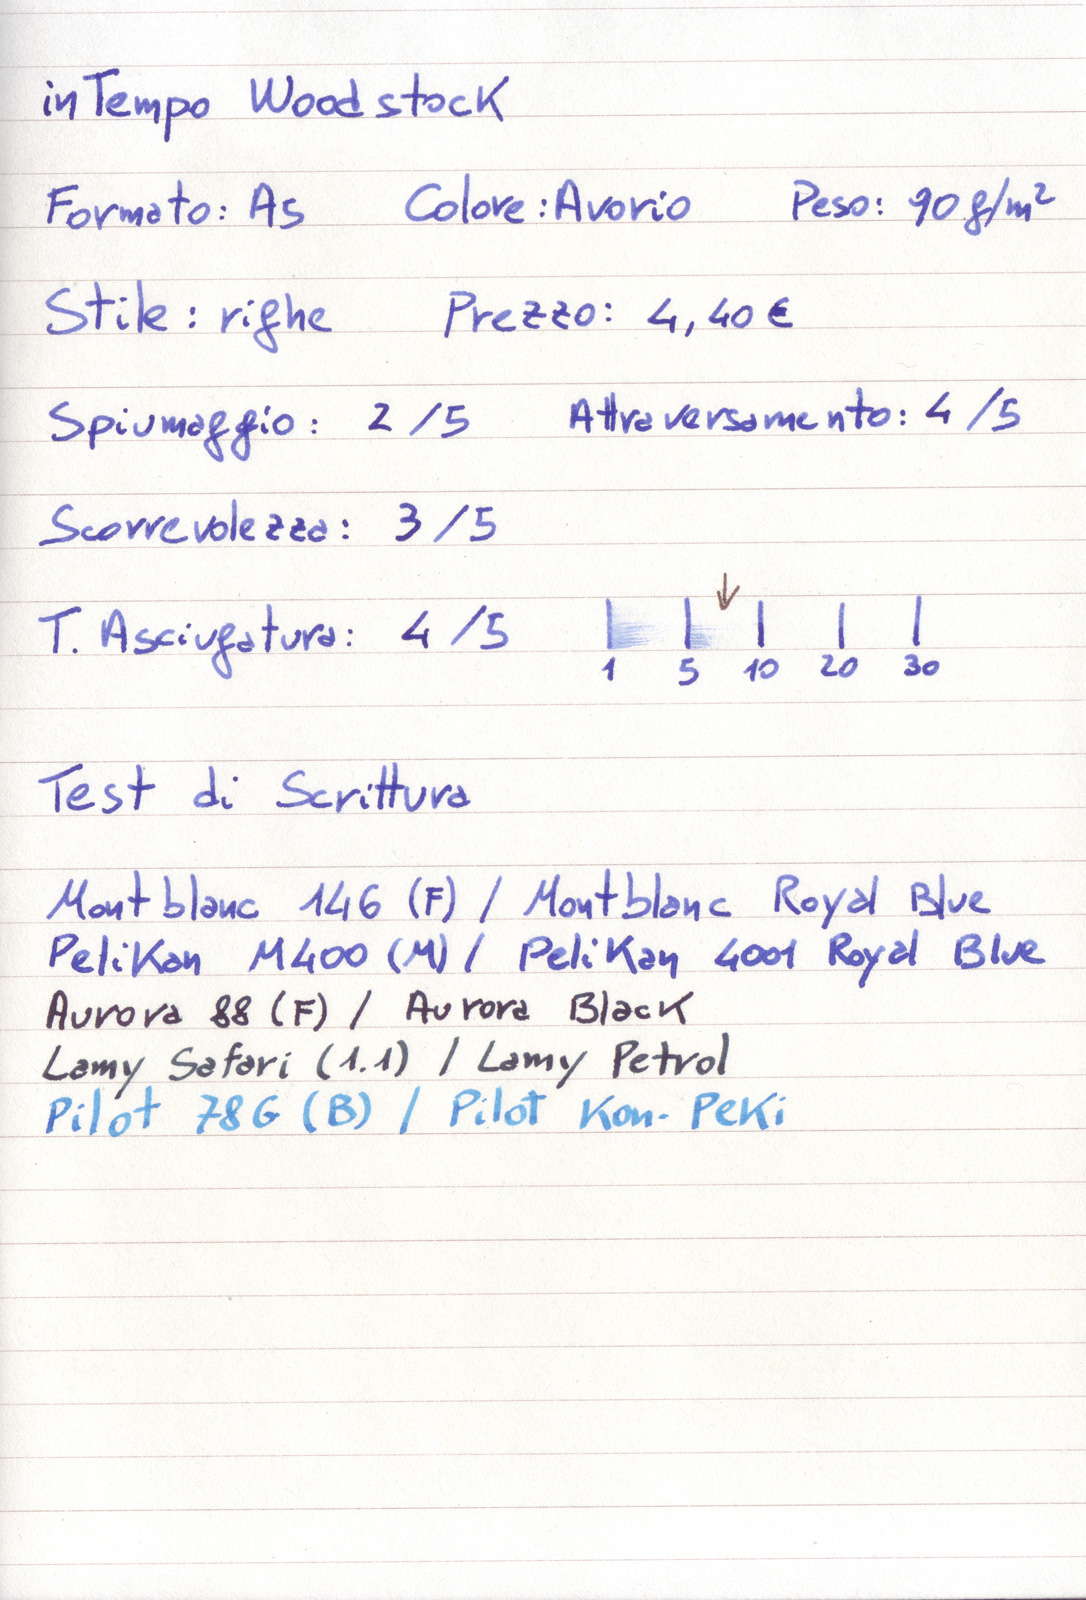 inTempo Woodstock
Formato: A5 Colore: Avorio Peso: 90 g/m²
Stile: righe Prezzo: 4,40 €
Spiumaggio: 2/5 Attraversamento: 4/5
Scorrevolezza: 3/5
T. Asciugatura: 4/5
1 5 10 20 30
Test di Scrittura
Montblanc 146 (F) / Montblanc Royal Blue
Pelikan M400 (M) / Pelikan 4001 Royal Blue
Aurora 88 (F) / Aurora Black
Lamy Safari (1.1) / Lamy Petrol
Pilot 78G (B) / Pilot Kon-Peki